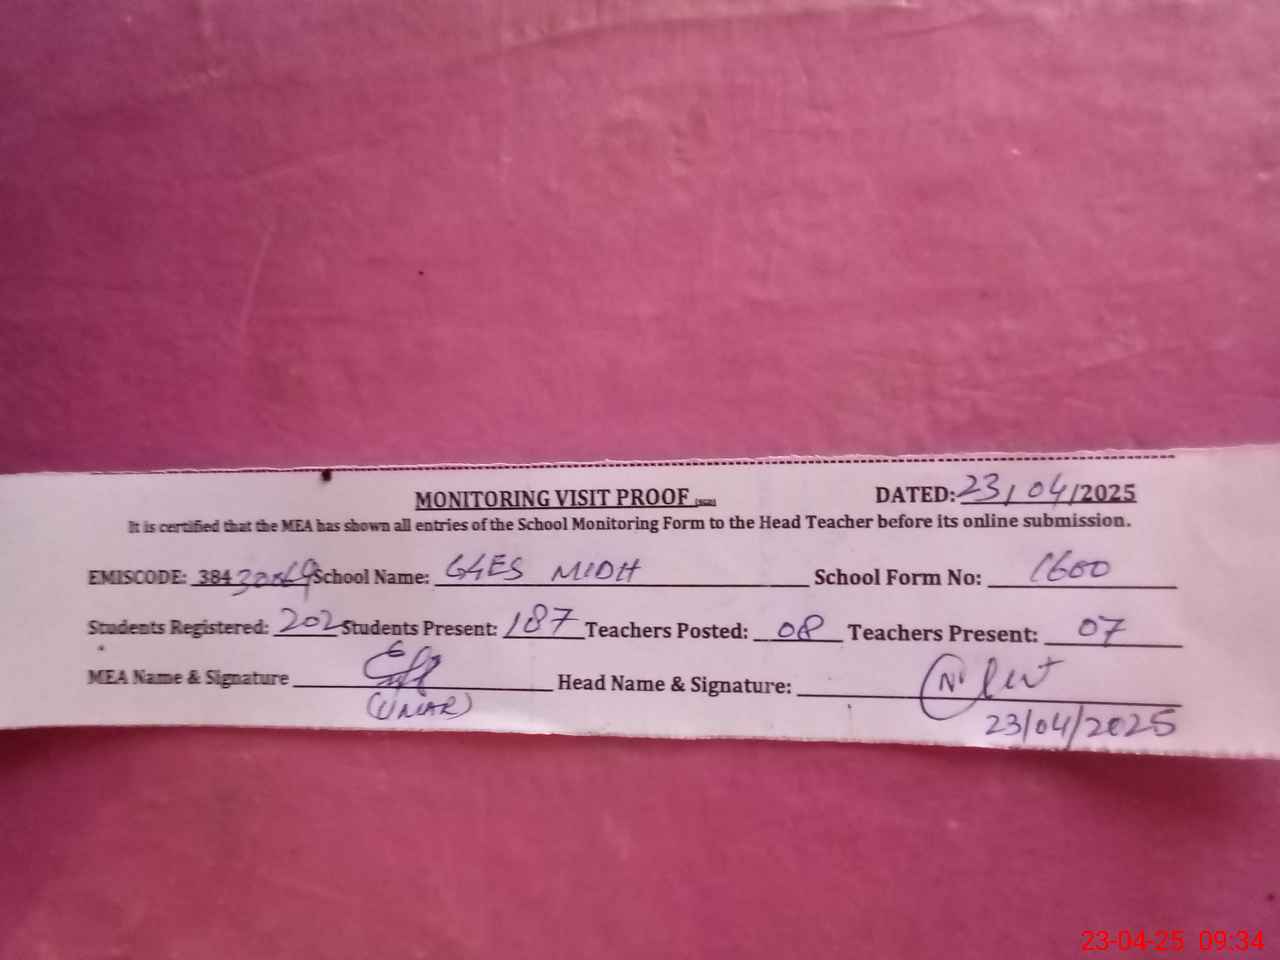 MONITORING VISIT PROOF (SGD) DATED: 23/04/2025
It is certified that the MEA has shown all entries of the School Monitoring Form to the Head Teacher before its online submission.
EMISCODE: 384 School Name: GGES MIDH School Form No: 1600
Students Registered: 202 Students Present: 187 Teachers Posted: 08 Teachers Present: 07
MEA Name & Signature Head Name & Signature:
(UMAR) 23/04/2025
23-04-25 09:34